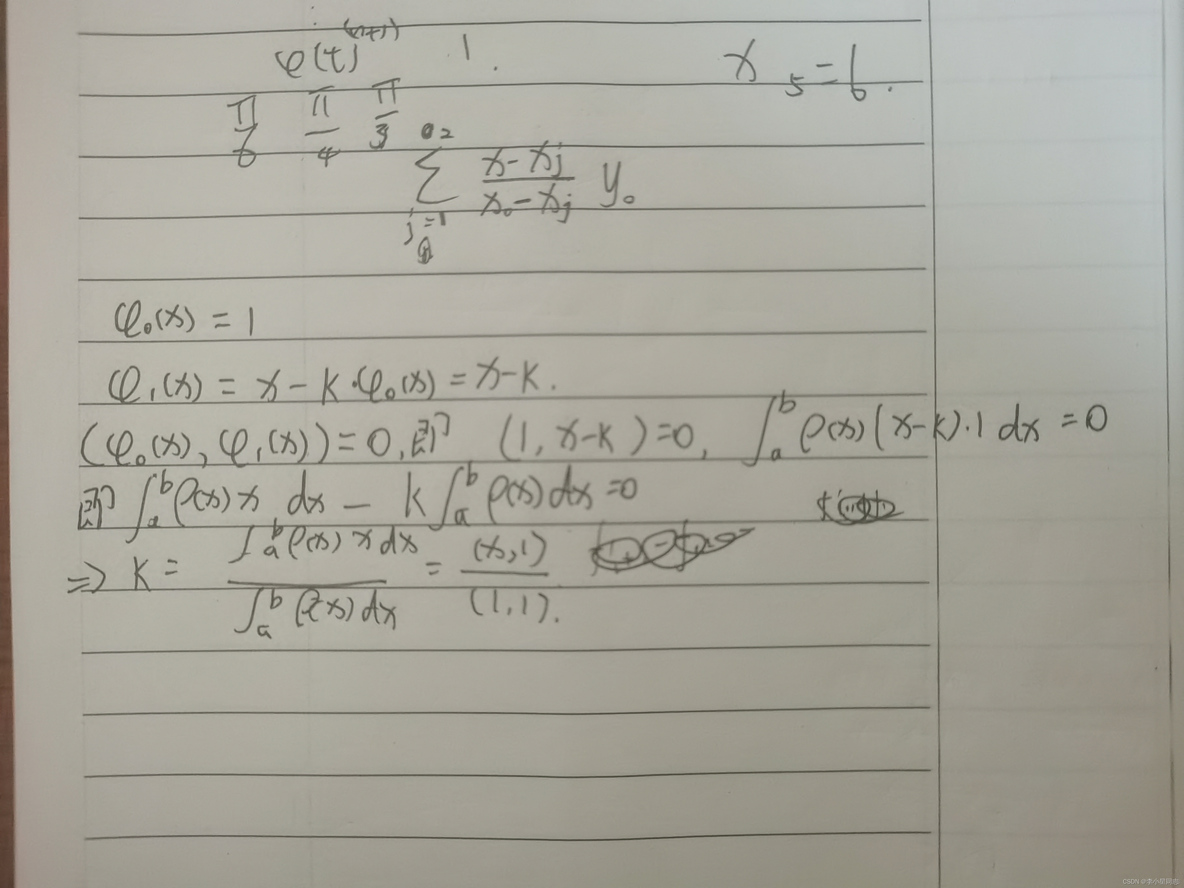 φ(t)^(n+1) 1.
x 5=6.
π/6 π/4 π/3
∑_{j=1}^{2} (x-x_j)/(x_0-x_j) y_0
φ_0(x) = 1
φ_1(x) = x - k·φ_0(x) = x-k.
(φ_0(x), φ_1(x)) = 0, 即 (1, x-k) = 0, ∫_a^b ρ(x)(x-k)·1 dx = 0
即 ∫_a^b ρ(x) x dx - k ∫_a^b ρ(x) dx = 0
⇒ k = ∫_a^b ρ(x) x dx / ∫_a^b ρ(x) dx = (x,1)/(1,1).